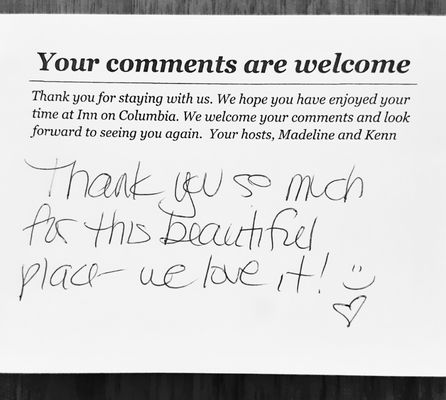 Your comments are welcome
Thank you for staying with us. We hope you have enjoyed your
time at Inn on Columbia. We welcome your comments and look
forward to seeing you again.  Your hosts, Madeline and Kenn
Thank you so much
for this beautiful
place - we love it!